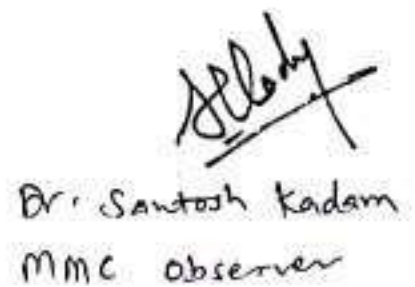 Dr. Santosh Kadam
MMC Observer